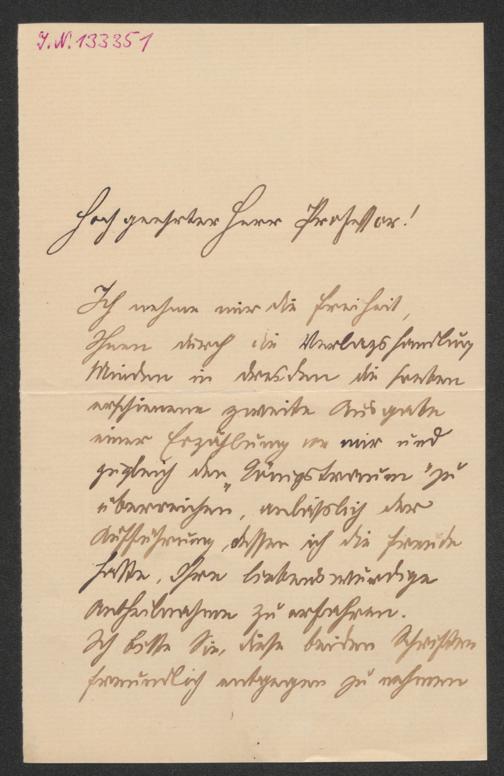 I.N. 133351
Hochgeehrter Herr Professor!
Ich nehme mir die Freiheit,
Ihnen durch die Verlagshandlung
Minden in Dresden die soeben
erschienene zweite Ausgabe
einer Erzählung von mir und
zugleich den „Königstraum" zu
überreichen, anlässlich der
Aufführung dessen ich die Freude
hatte, Ihre liebenswürdige
Antheilnahme zu erfahren.
Ich bitte Sie, diese beiden Schriften
freundlich entgegen zu nehmen